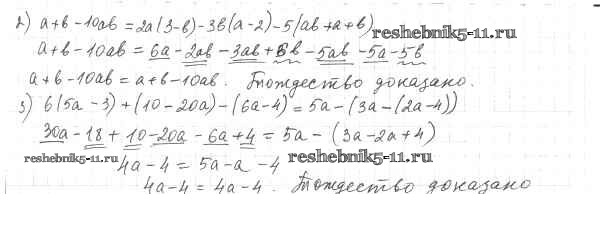 2) a+b-10ab=2a(3-b)-3b(a-2)-5(ab+a+b)
reshebnik5-11.ru
a+b-10ab=6a-2ab-3ab+6b-5ab-5a-5b
a+b-10ab=a+b-10ab. Тождество доказано.
3) 6(5a-3)+(10-20a)-(6a-4)=5a-(3a-(2a-4))
30a-18+10-20a-6a+4=5a-(3a-2a+4)
reshebnik5-11.ru
4a-4=5a-a-4
reshebnik5-11.ru
4a-4=4a-4. Тождество доказано